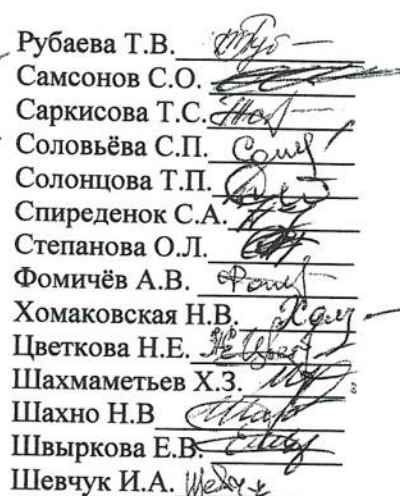 Рубаева Т.В.
Самсонов С.О.
Саркисова Т.С.
Соловьёва С.П.
Солонцова Т.П.
Спиреденок С.А.
Степанова О.Л.
Фомичёв А.В.
Хомаковская Н.В.
Цветкова Н.Е.
Шахмаметьев Х.З.
Шахно Н.В
Швыркова Е.В.
Шевчук И.А.